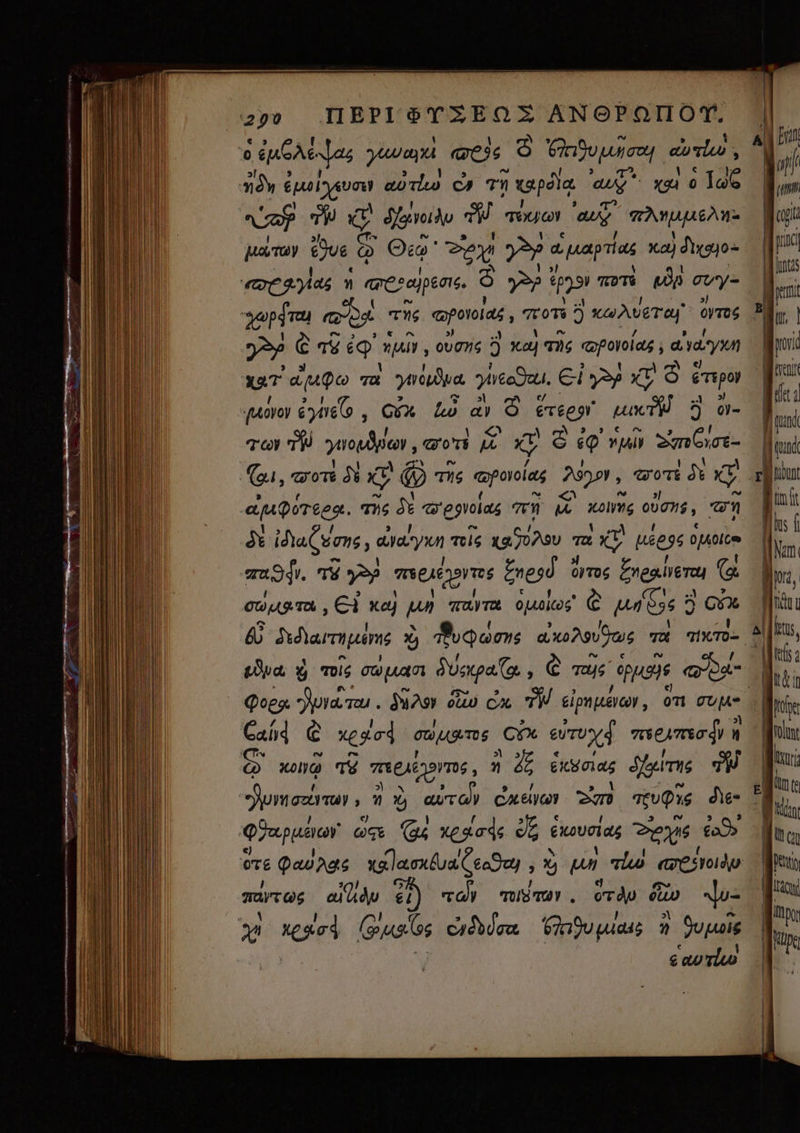 290 ΠΕΡΙ ΦΥΣΕΩΣ ΑΝΘΡΩΠΟΥ.
ὁ ἐμβλέψας γυναικὶ πρὸς τὸ ἐπιθυμῆσαι αὐτὴν,
ἤδη ἐμοίχευσεν αὐτὴν ἐν τῇ καρδίᾳ αὐτοῦ· καὶ ὁ Ἰὼβ
ὑπὲρ τῶν κατὰ διάνοιαν τῶν τέκνων αὐτοῦ πλημμελη-
μάτων ἔθυε τῷ Θεῷ· ἀρχὴ γὰρ ἁμαρτίας καὶ δικαιο-
πραγίας ἡ προαίρεσις. τὸ γὰρ ἔργον ποτὲ μὲν συγ-
χωρεῖται παρὰ τῆς προνοίας, ποτὲ δὲ κωλύεται· ὄντος
γὰρ καὶ τοῦ ἐφ' ἡμῖν, οὔσης δὲ καὶ τῆς προνοίας, ἀνάγκη
κατ' ἄμφω τὰ γινόμενα γίνεσθαι. εἰ γὰρ κατὰ τὸ ἕτερον
μόνον ἐγίνετο, οὐκ ἦν ἂν τὸ ἕτερον· μικτῶν δὲ ὄν-
των τῶν γινομένων, ποτὲ μὲν κατὰ τὸ ἐφ' ἡμῖν ἀποβήσε-
ται, ποτὲ δὲ κατὰ τὸν τῆς προνοίας λόγον, ποτὲ δὲ κατὰ
ἀμφότερα. τῆς δὲ προνοίας πῆ μὲν κοινῆς οὔσης, πῆ
δὲ ἰδιαζούσης, ἀνάγκη τοῖς καθόλου τὰ κατὰ μέρος ὁμοίως
παθεῖν. τοῦ γὰρ περιέχοντος ξηροῦ ὄντος ξηραίνεται τὰ
σώματα, εἰ καὶ μὴ πάντα ὁμοίως· καὶ μητρὸς δὲ οὐκ
εὖ δεδιαιτημένης καὶ τρυφώσης ἀκολούθως τὰ τικτό-
μενα καὶ τοῖς σώμασι δύσκρατα, καὶ ταῖς ὁρμαῖς παρά-
φορα γίνεται. δῆλον οὖν ἐκ τῶν εἰρημένων, ὅτι συμ-
βαίνει καὶ κράσει σώματος οὐκ εὐτυχεῖ περιπεσεῖν ἢ
τῷ κοινῷ τοῦ περιέχοντος, ἢ ἐξ ἑκουσίας διαίτης τῶν
γεννησάντων, ἢ καὶ αὐτῶν ἐκείνων ἀπὸ τρυφῆς διε-
φθαρμένων· ὥστε τὰς κράσεις ἐξ ἑκουσίας ἀρχῆς ἔσθ'
ὅτε φαύλας κατασκευάζεσθαι, καὶ μὴ τὴν πρόνοιαν
πάντως αἰτίαν εἶναι τῶν τοιούτων. ὅταν οὖν ψυ-
χὴ κράσει σώματος ἐνδοῦσα ἐπιθυμίαις ἢ θυμοῖς
ἑαυτὴν